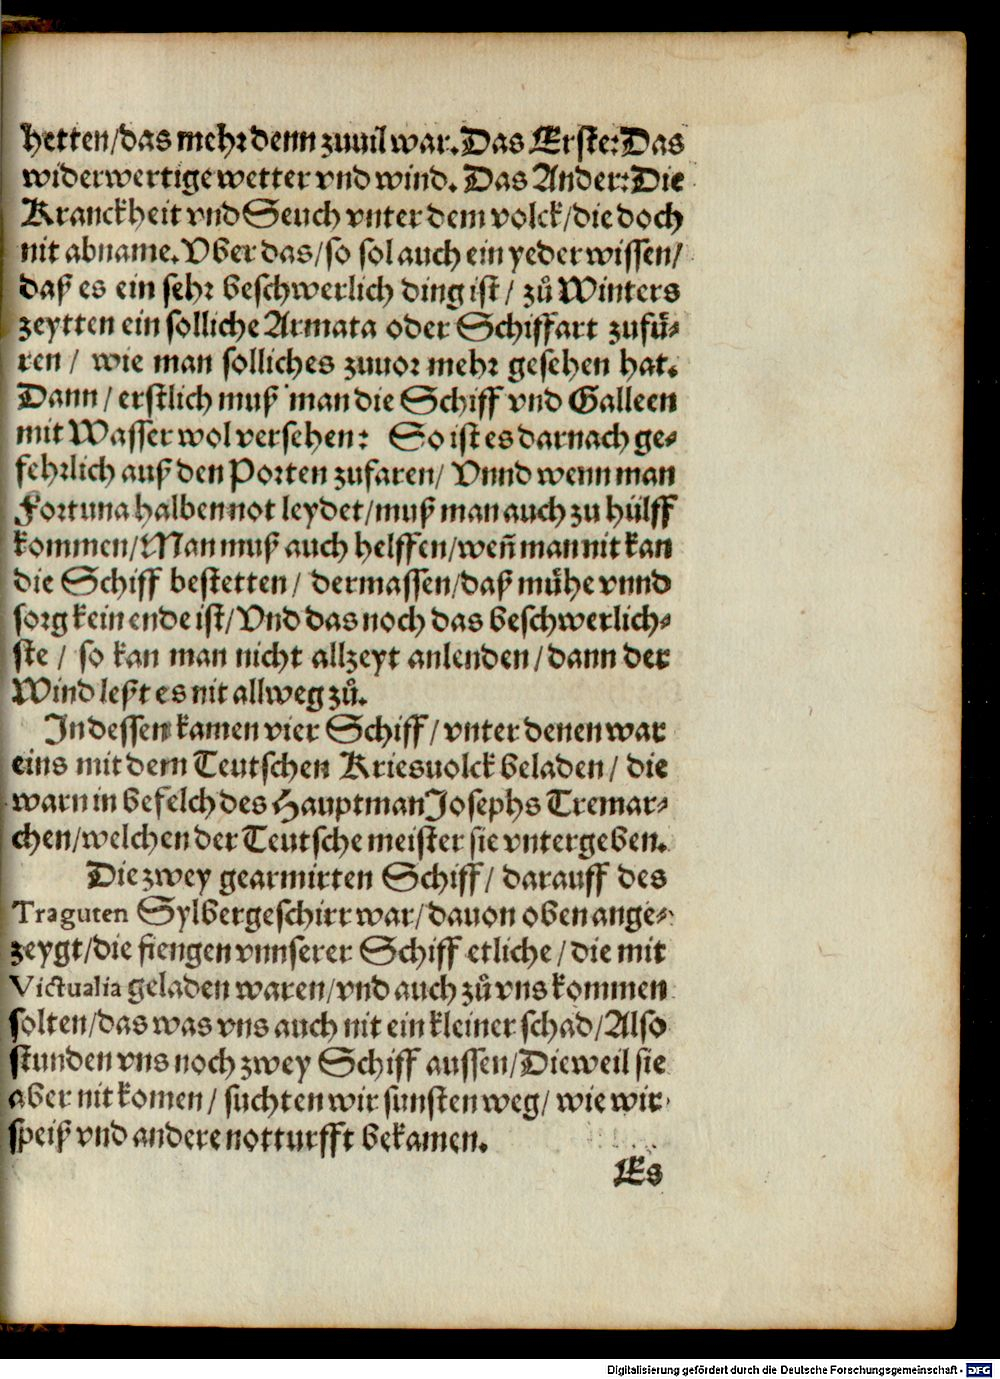 hetten/das mehr denn zuuil war. Das Erste: Das
widerwertige wetter vnd wind. Das Ander: Die
Kranckheit vnd Seuch vnter dem volck/die doch
nit abname. Vber das/so sol auch ein yeder wissen/
daß es ein sehr beschwerlich ding ist/ zů Winters
zeytten ein solliche Armata oder Schiffart zufů⸗
ren/ wie man solliches zuuor mehr gesehen hat.
Dann/ erstlich muß man die Schiff vnd Galleen
mit Wasser wol versehen: So ist es darnach ge⸗
fehrlich auß den Porten zufaren/ Vnnd wenn man
Fortuna halben not leydet/muß man auch zu hülff
kommen/Man muß auch helffen/weñ man nit kan
die Schiff bestetten/ dermassen/daß mühe vnnd
sorg kein ende ist/Vnd das noch das beschwerlich⸗
ste/ so kan man nicht allzeyt anlenden/dann der
Wind leßt es nit allweg zů.
Indessen kamen vier Schiff/vnter denen war
eins mit dem Teutschen Kriesuolck beladen/ die
warn in befelch des Hauptman Josephs Tremar⸗
chen/welchen der Teutsche meister sie vntergeben.
Die zwey gearmirten Schiff/ darauff des
Traguten Sylbergeschirr war/dauon oben ange⸗
zeygt/die fiengen vnnserer Schiff etliche/die mit
Victualia geladen waren/vnd auch zů vns kommen
solten/das was vns auch nit ein kleiner schad/Also
stunden vns noch zwey Schiff aussen/Dieweil sie
aber nit komen/ suchten wir sunsten weg/ wie wir
speiß vnd andere notturfft bekamen.
Es
Digitalisierung gefördert durch die Deutsche Forschungsgemeinschaft - DFG